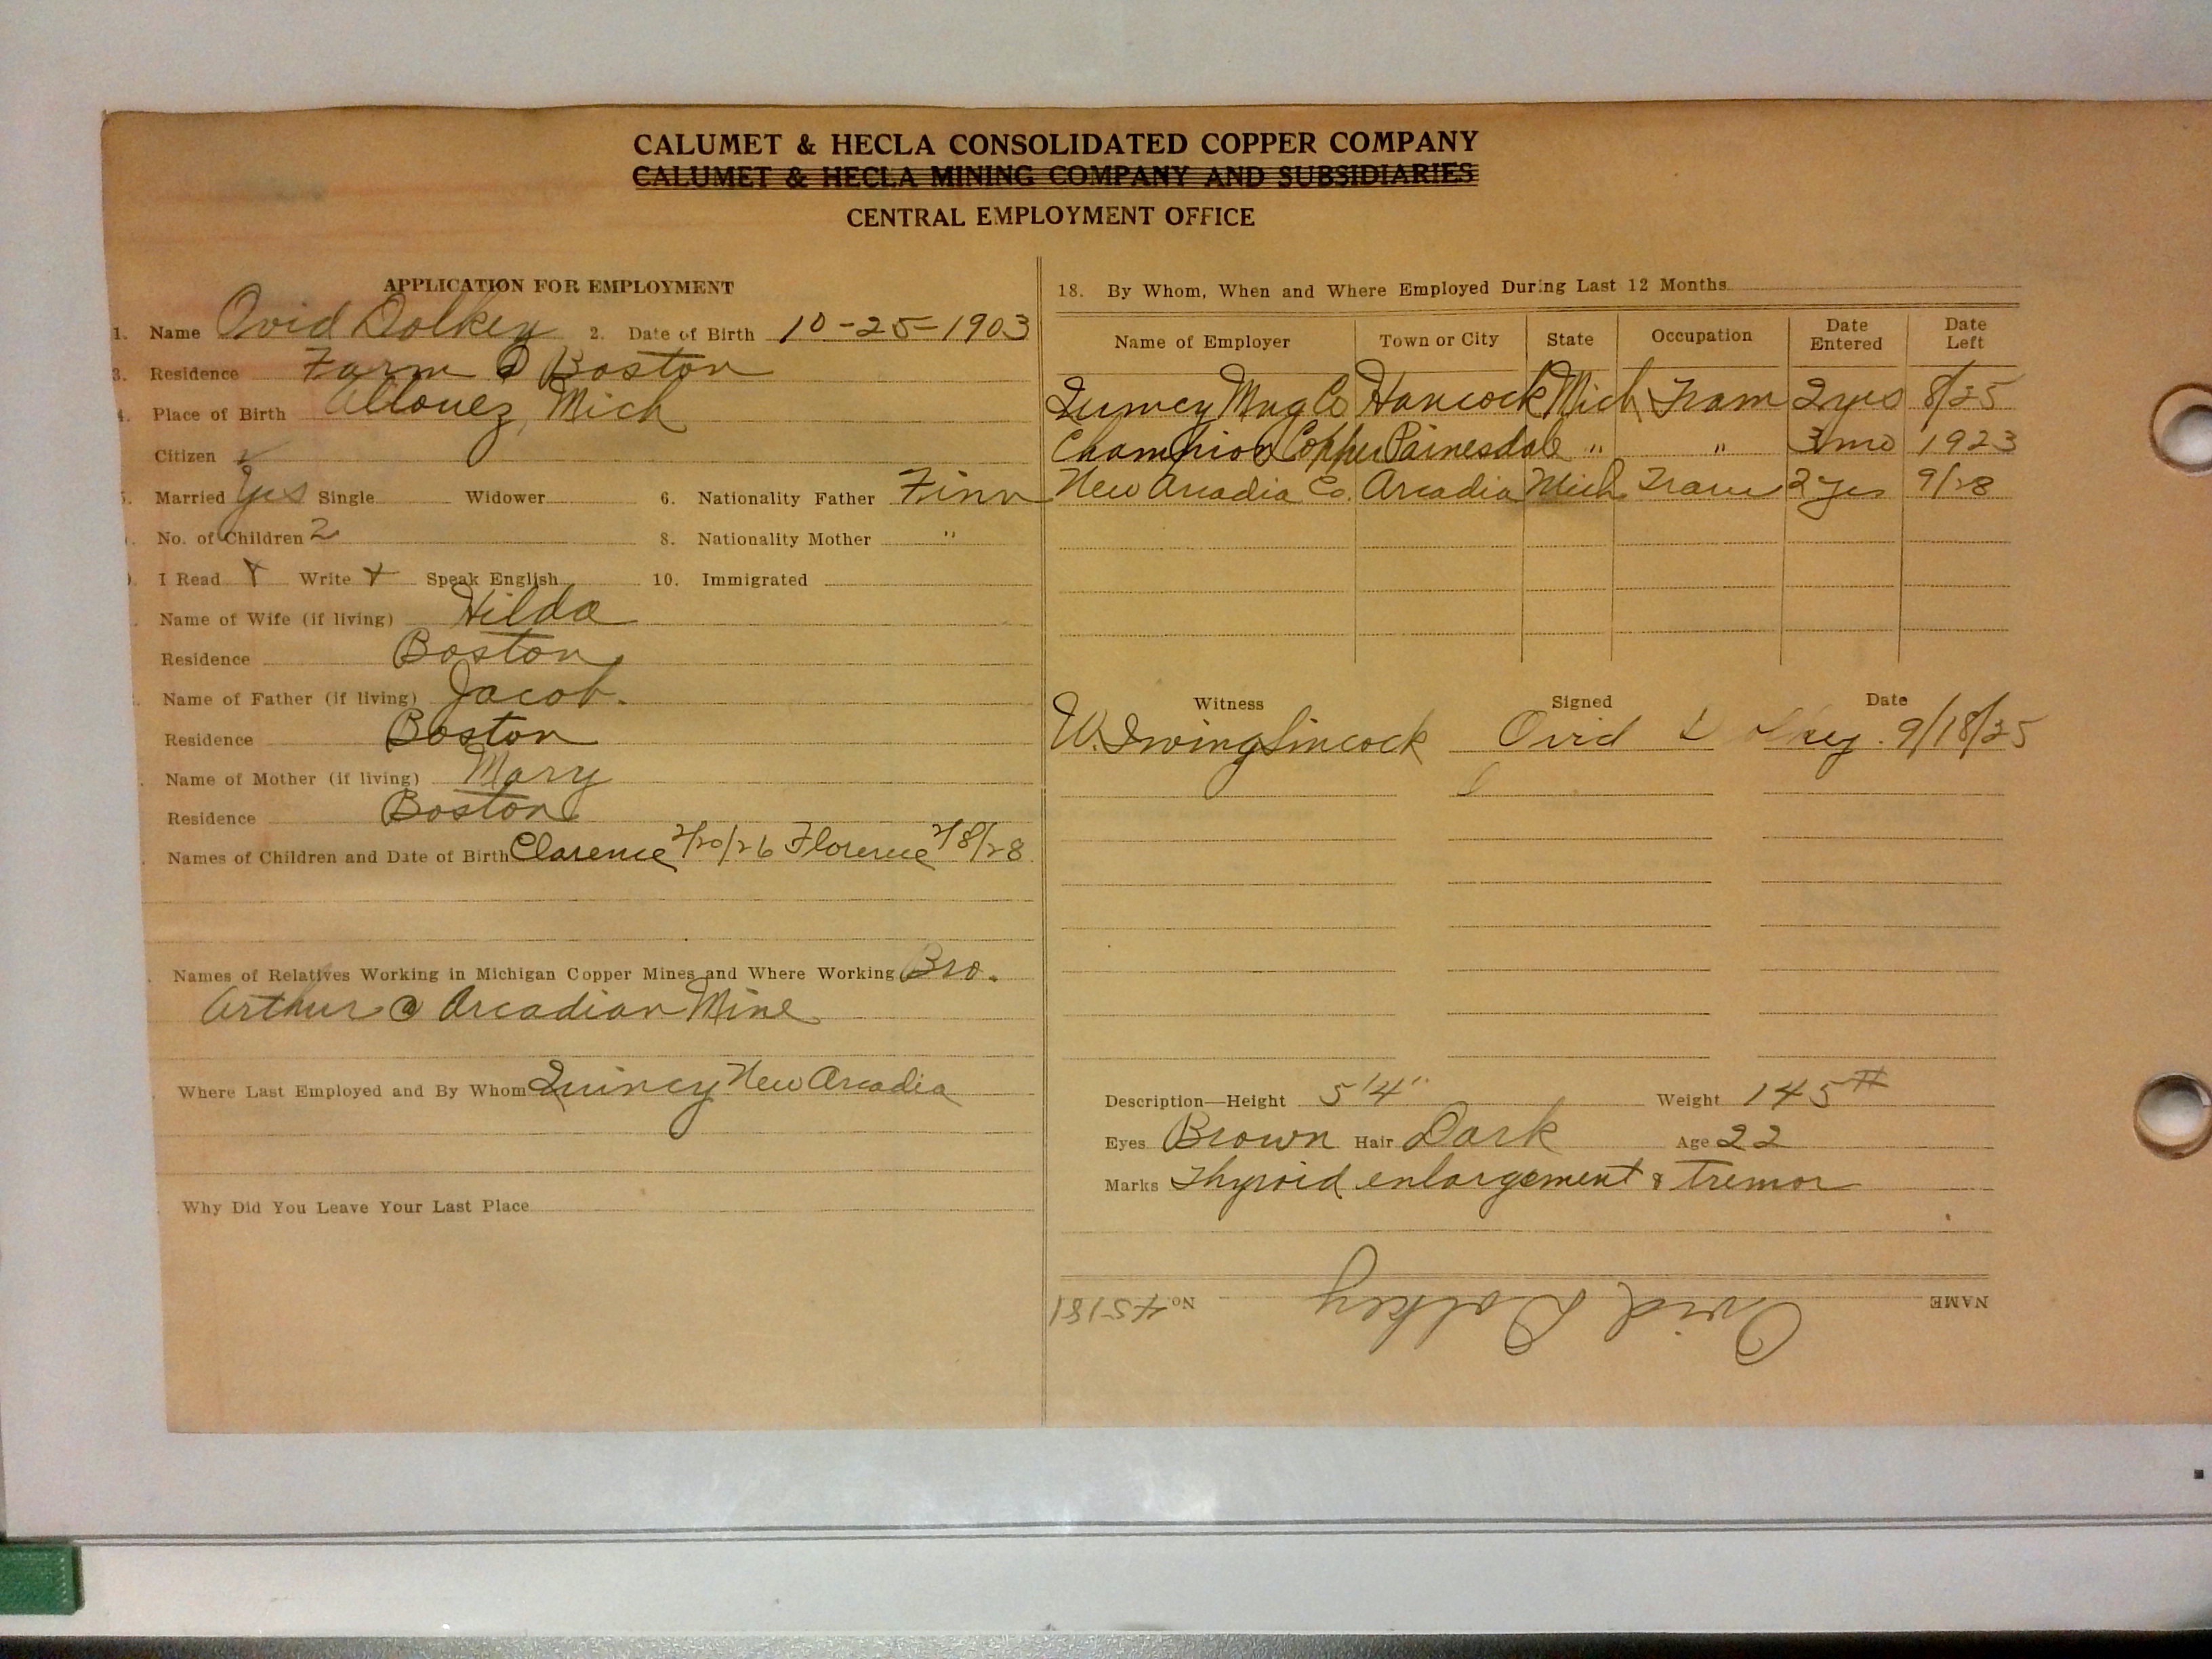 CALUMET & HECLA CONSOLIDATED COPPER COMPANY
CALUMET & HECLA MINING COMPANY AND SUBSIDIARIES
CENTRAL EMPLOYMENT OFFICE
APPLICATION FOR EMPLOYMENT
1. Name Ovid Dolkey 2. Date of Birth 10-25-1903
3. Residence Farm @ Boston
4. Place of Birth Allouez, Mich
Citizen ✓
Married Yes Single Widower 6. Nationality Father Finn
No. of Children 2 8. Nationality Mother "
I Read X Write X Speak English 10. Immigrated
Name of Wife (if living) Hilda
Residence Boston
Name of Father (if living) Jacob.
Residence Boston
Name of Mother (if living) Mary
Residence Boston
Names of Children and Date of Birth Clarence 2/20/26 Florence 2/8/28
Names of Relatives Working in Michigan Copper Mines and Where Working Bro.
Arthur @ Arcadian Mine
Where Last Employed and By Whom Quincy New Arcadia
Why Did You Leave Your Last Place
18. By Whom, When and Where Employed During Last 12 Months
Name of Employer Town or City State Occupation Date Entered Date Left
Quincy Mng Co Hancock Mich Tram 2 yrs 8/25
Champion Copper Painesdale " " 3 mo 1923
New Arcadia Co. Arcadia Mich Tram 2 yrs 9/28
Witness Signed Date
W. Irving Lincock Ovid Dolkey. 9/18/25
Description—Height 5'4" Weight 145#
Eyes Brown Hair Dark Age 22
Marks Thyroid enlargement & tremor
NAME Ovid Dolkey No. 45181